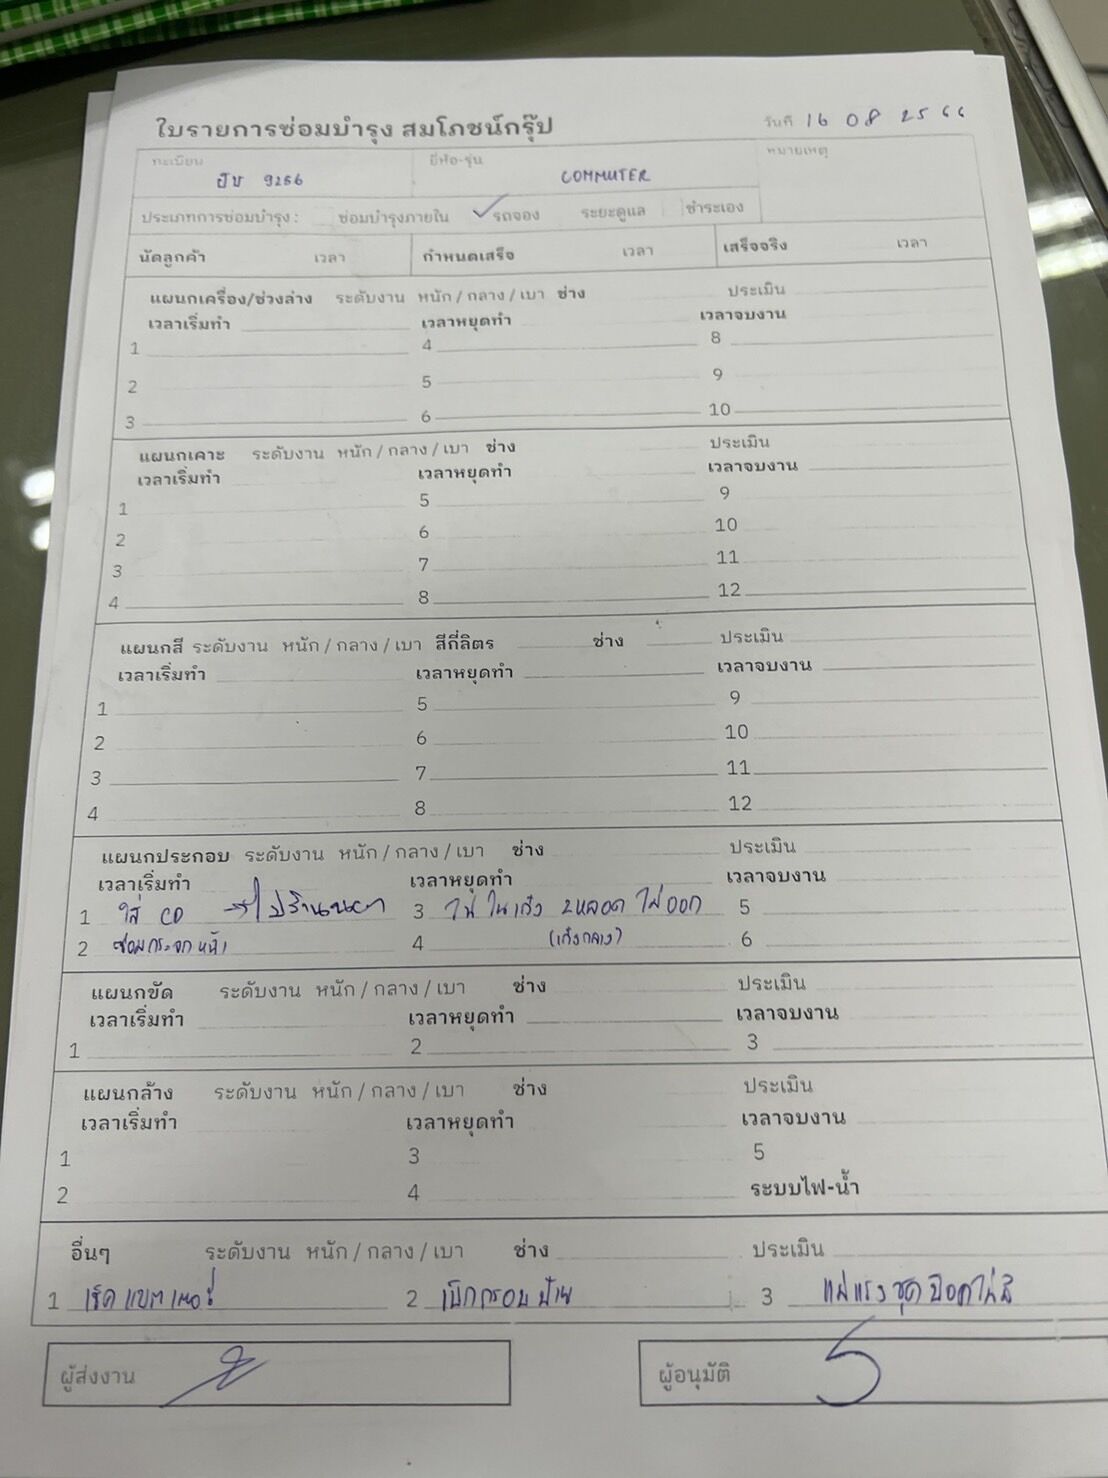 ใบรายการซ่อมบำรุง สมโภชน์กรุ๊ป
วันที่ 16 08 2566
ทะเบียน ยี่ห้อ-รุ่น หมายเหตุ
ฮับ 9256 COMMUTER
ประเภทการซ่อมบำรุง : ซ่อมบำรุงภายใน รถจอง ระยะดูแล ชำระเอง
นัดลูกค้า เวลา กำหนดเสร็จ เวลา เสร็จจริง เวลา
แผนกเครื่อง/ช่วงล่าง ระดับงาน หนัก / กลาง / เบา ช่าง ประเมิน
เวลาเริ่มทำ เวลาหยุดทำ เวลาจบงาน
1 4 8
2 5 9
3 6 10
แผนกเคาะ ระดับงาน หนัก / กลาง / เบา ช่าง ประเมิน
เวลาเริ่มทำ เวลาหยุดทำ เวลาจบงาน
1 5 9
2 6 10
3 7 11
4 8 12
แผนกสี ระดับงาน หนัก / กลาง / เบา สีกี่ลิตร ช่าง ประเมิน
เวลาเริ่มทำ เวลาหยุดทำ เวลาจบงาน
1 5 9
2 6 10
3 7 11
4 8 12
แผนกประกอบ ระดับงาน หนัก / กลาง / เบา ช่าง ประเมิน
เวลาเริ่มทำ เวลาหยุดทำ เวลาจบงาน
1 ใส่ CD → ไปร้าน 3 ไฟในเก๋ง 2หลอด ไม่ออก 5
2 ซ่อมกระจกหน้า 4 (เก๋งกลาง) 6
แผนกขัด ระดับงาน หนัก / กลาง / เบา ช่าง ประเมิน
เวลาเริ่มทำ เวลาหยุดทำ เวลาจบงาน
1 2 3
แผนกล้าง ระดับงาน หนัก / กลาง / เบา ช่าง ประเมิน
เวลาเริ่มทำ เวลาหยุดทำ เวลาจบงาน
1 3 5
2 4 ระบบไฟ-น้ำ
อื่นๆ ระดับงาน หนัก / กลาง / เบา ช่าง ประเมิน
1 เช็คแบตเตอรี่ 2 เบิกกรอบป้าย 3 แม่แรงชุด
ผู้ส่งงาน ผู้อนุมัติ